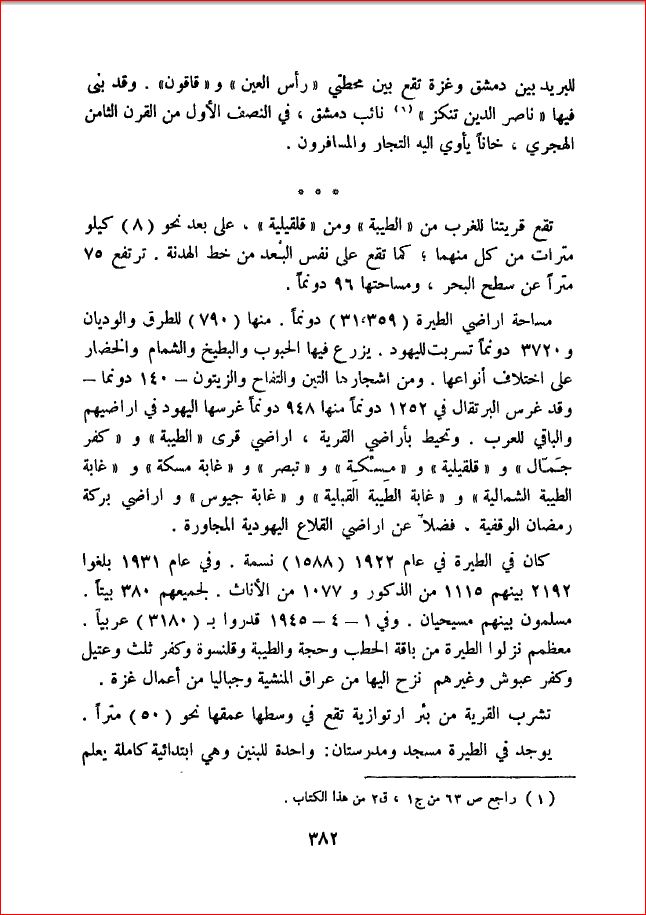 للبريد بين دمشق وغزة تقع بين محطتي «رأس العين» و«قاقون» . وقد بنى
فيها «ناصر الدين تنكز» (١) نائب دمشق ، في النصف الأول من القرن الثامن
الهجري ، خاناً يأوي اليه التجار والمسافرون .
* * *
تقع قريتنا للغرب من «الطيبة» ومن «قلقيلية» ، على بعد نحو (٨) كيلو
مترات من كل منهما ؛ كما تقع على نفس البُعد من خط الهدنة . ترتفع ٧٥
متراً عن سطح البحر ، ومساحتها ٩٦ دونماً .
مساحة اراضي الطيرة (٣١،٣٥٩) دونماً . منها (٧٩٠) للطرق والوديان
و ٣٧٢٠ دونماً تسربت لليهود . يزرع فيها الحبوب والبطيخ والشمام والخضار
على اختلاف أنواعها . ومن اشجارها التين والتفاح والزيتون – ١٤٠ دونما –
وقد غرس البرتقال في ١٢٥٢ دونماً منها ٩٤٨ دونماً غرسها اليهود في اراضيهم
والباقي للعرب . وتحيط بأراضي القرية ، اراضي قرى «الطيبة» و «كفر
جَمّال» و «قلقيلية» و «مِسْكَة» و «تبصر» و «غابة مسكة» و «غابة
الطيبة الشمالية» و «غابة الطَيبة القبلية» و «غابة جيوس» و اراضي بركة
رمضان الوقفية ، فضلاً عن اراضي القلاع اليهودية المجاورة .
كان في الطيرة في عام ١٩٢٢ (١٥٨٨) نسمة . وفي عام ١٩٣١ بلغوا
٢١٩٢ بينهم ١١١٥ من الذكور و ١٠٧٧ من الأناث . لجميعهم ٣٨٠ بيتاً .
مسلمون بينهم مسيحيان . وفي ١ – ٤ – ١٩٤٥ قدروا بـ (٣١٨٠) عربياً .
معظمم نزلوا الطيرة من باقة الحطب وحجة والطيبة وقلنسوة وكفر ثلث وعتيل
وكفر عبوش وغيرهم نزح اليها من عراق المنشية وجباليا من أعمال غزة .
تشرب القرية من بئر ارتوازية تقع في وسطها عمقها نحو (٥٠) متراً .
يوجد في الطيرة مسجد ومدرستان: واحدة للبنين وهي ابتدائية كاملة يعلم
(١) راجع ص ٦٣ من ج١ ، ق٢ من هذا الكتاب .
٣٨٢